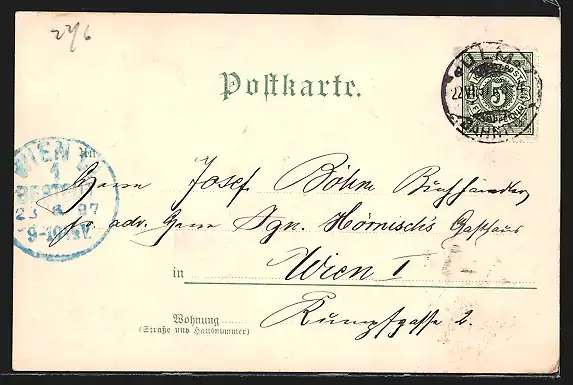 22/6
Postkarte.
ULM
22 VI
5
BAHNH
WIEN
1
23 6 97
9-10
An
Herrn Josef Böhm Buchhändler
pr. adr. Herrn Ign. Hörnisch's Gasthaus
in Wien I
Wohnung
(Straße und Hausnummer)
Rumpfgasse 2.